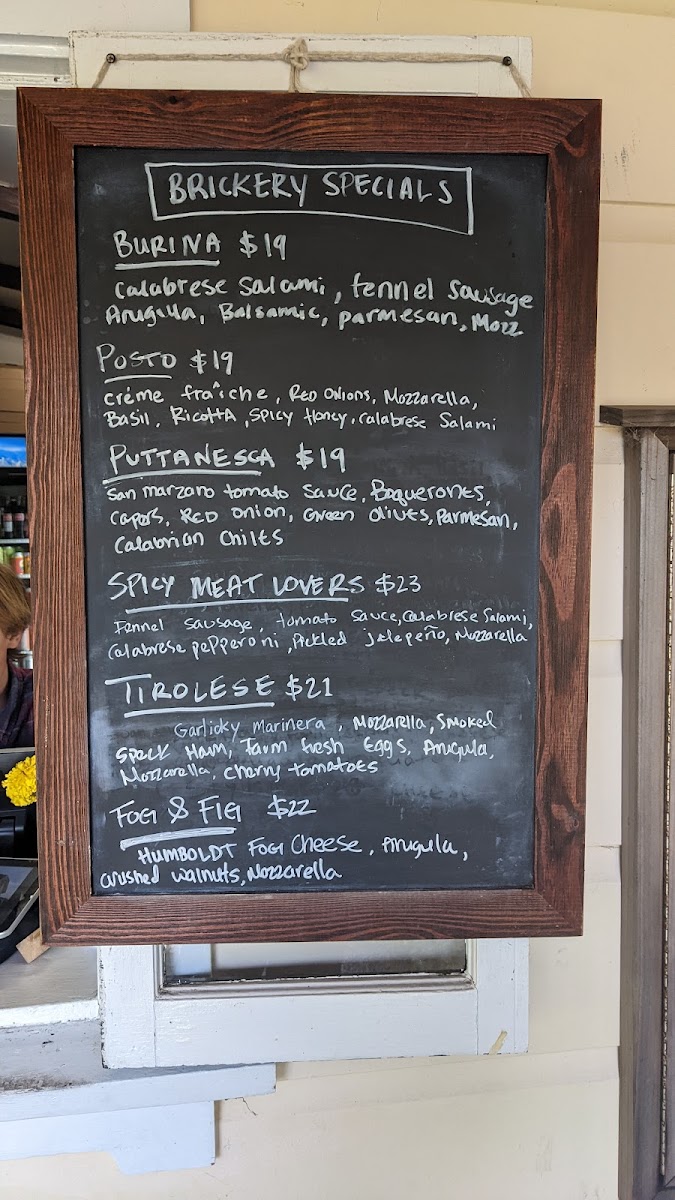 BRICKERY SPECIALS
BURINA $19
Calabrese Salami, fennel Sausage
Arugula, Balsamic, parmesan, Mozz
POSTO $19
créme fraîche, Red Onions, Mozzarella,
Basil, Ricotta, spicy Honey, calabrese Salami
PUTTANESCA $19
San marzano tomato Sauce, Boquerones,
Capers, Red onion, Green olives, Parmesan,
Calabrian chiles
SPICY MEAT LOVERS $23
Fennel sausage, tomato sauce, Calabrese Salami,
Calabrese pepperoni, Pickled jelepeño, Mozzarella
TIROLESE $21
Garlicky Marinera, Mozzarella, Smoked
Speck Ham, Farm fresh Eggs, Arugula,
Mozzarella, cherry tomatoes
FOG & FIG $22
HUMBOLDT FOG Cheese, Arugula,
crushed walnuts, Mozzarella